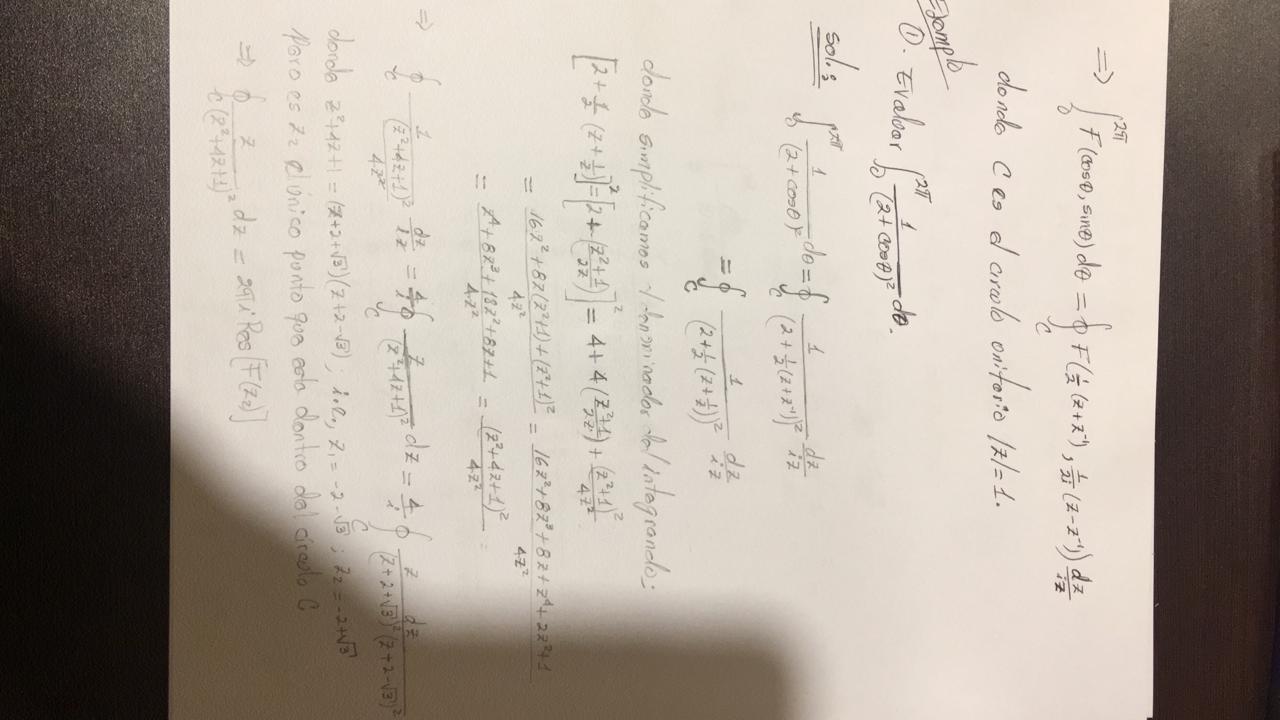 => ∫₀^2π F(cosθ, sinθ) dθ = ∮_C F(1/2 (z+z⁻¹), 1/2i (z-z⁻¹)) dz/iz
donde C es el circulo unitario |z|=1.
Ejemplo
①. Evaluar ∫₀^2π 1/(2+cosθ)² dθ.
Sol:: ∫₀^2π 1/(2+cosθ)² dθ = ∮_C 1/(2+1/2(z+z⁻¹))² dz/iz
= ∮_C 1/(2+1/2(z+1/z))² dz/iz
donde simplificamos el denominador del integrando:
[2+1/2(z+1/z)]² = [2+(z²+1/2z)]² = 4+4(z²+1/2z)+(z²+1)²/4z²
= 16z²+8z(z²+1)+(z²+1)²/4z² = 16z²+8z³+8z+z⁴+2z²+1/4z²
= z⁴+8z³+18z²+8z+1/4z² = (z²+4z+1)²/4z²
=> ∮_C 1/((z²+4z+1)²/4z²) dz/iz = 4/i ∮_C z/(z²+4z+1)² dz = 4/i ∮_C z dz/(z+2+√3)²(z+2-√3)²
donde z²+4z+1=(z+2+√3)(z+2-√3); i.e, z₁=-2-√3; z₂=-2+√3
pero es z₂ el único punto que esta dentro del circulo C
=> ∮_C z/(z²+4z+1)² dz = 2πi Res[F(z₂)]